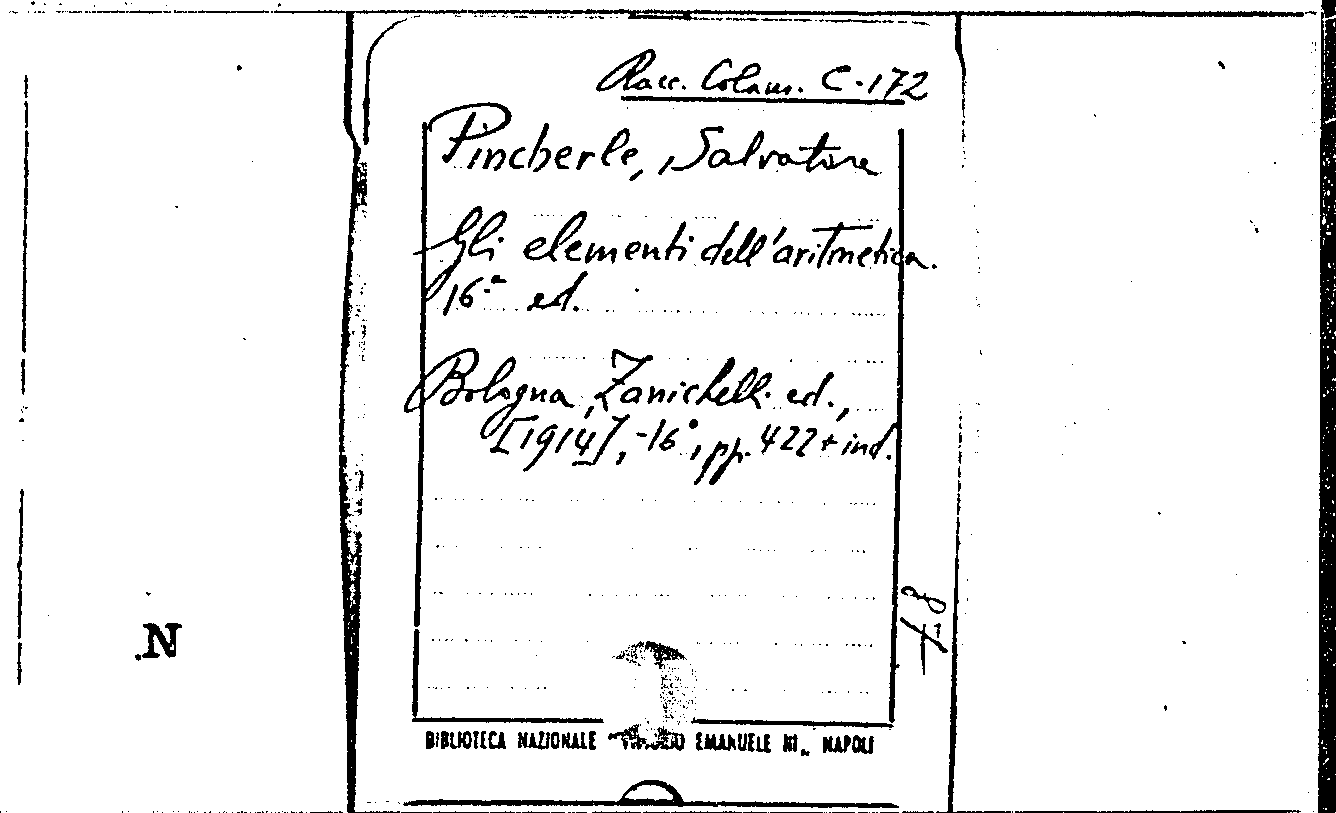 Racc. Colam. C-172
Pincherle, Salvatore
Gli elementi dell'aritmetica.
16.ª ed.
Bologna, Zanichelli ed.,
[1914], -16°, pp. 422 + ind.
N.
BIBLIOTECA NAZIONALE "VITTORIO EMANUELE III" NAPOLI